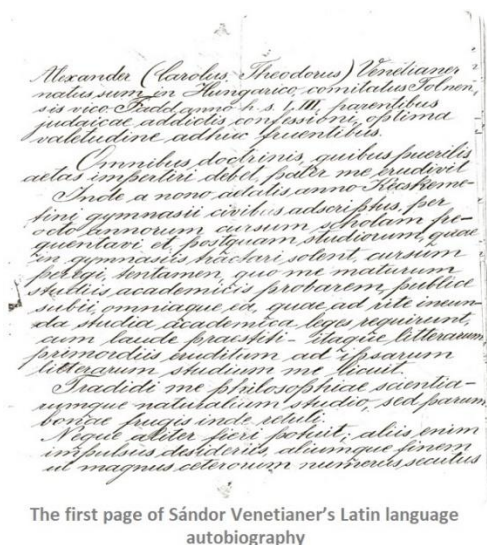 Alexander (Carolus, Theodorus) Venetianer
natus sum in Hungarico, comitatus Tolnen-
sis vico Fadd anno h. s. LIII, parentibus
judaicae addictis confessioni, optima
valetudine adhuc fruentibus.
Omnibus doctrinis, quibus puerilis
aetas impertiri debet, pater me erudivit
Inde a nono aetatis anno Kecskeme-
tini gymnasii civibus adscriptus, per
octo annorum cursum scholam fre-
quentavi et, postquam studiorum, quae
in gymnasiis tractari solent, cursum
peregi, tentamen, quo me maturum
studiis academicis probarem, publice
subii, omniaque ea, quae ad rite ineun-
da studia academica leges requirunt,
cum laude praestiti - itaque litterarum
primordiis eruditum ad ipsarum
litterarum studium me
Tradidi me philosophiae scientia-
rumque naturalium studio, sed parum
bonae frugis inde retuli.
Neque aliter fieri potuit; aliis enim
impulsus desideriis, aliumque finem
ut magnus ceterorum numerus secutus
The first page of Sándor Venetianer's Latin language
autobiography